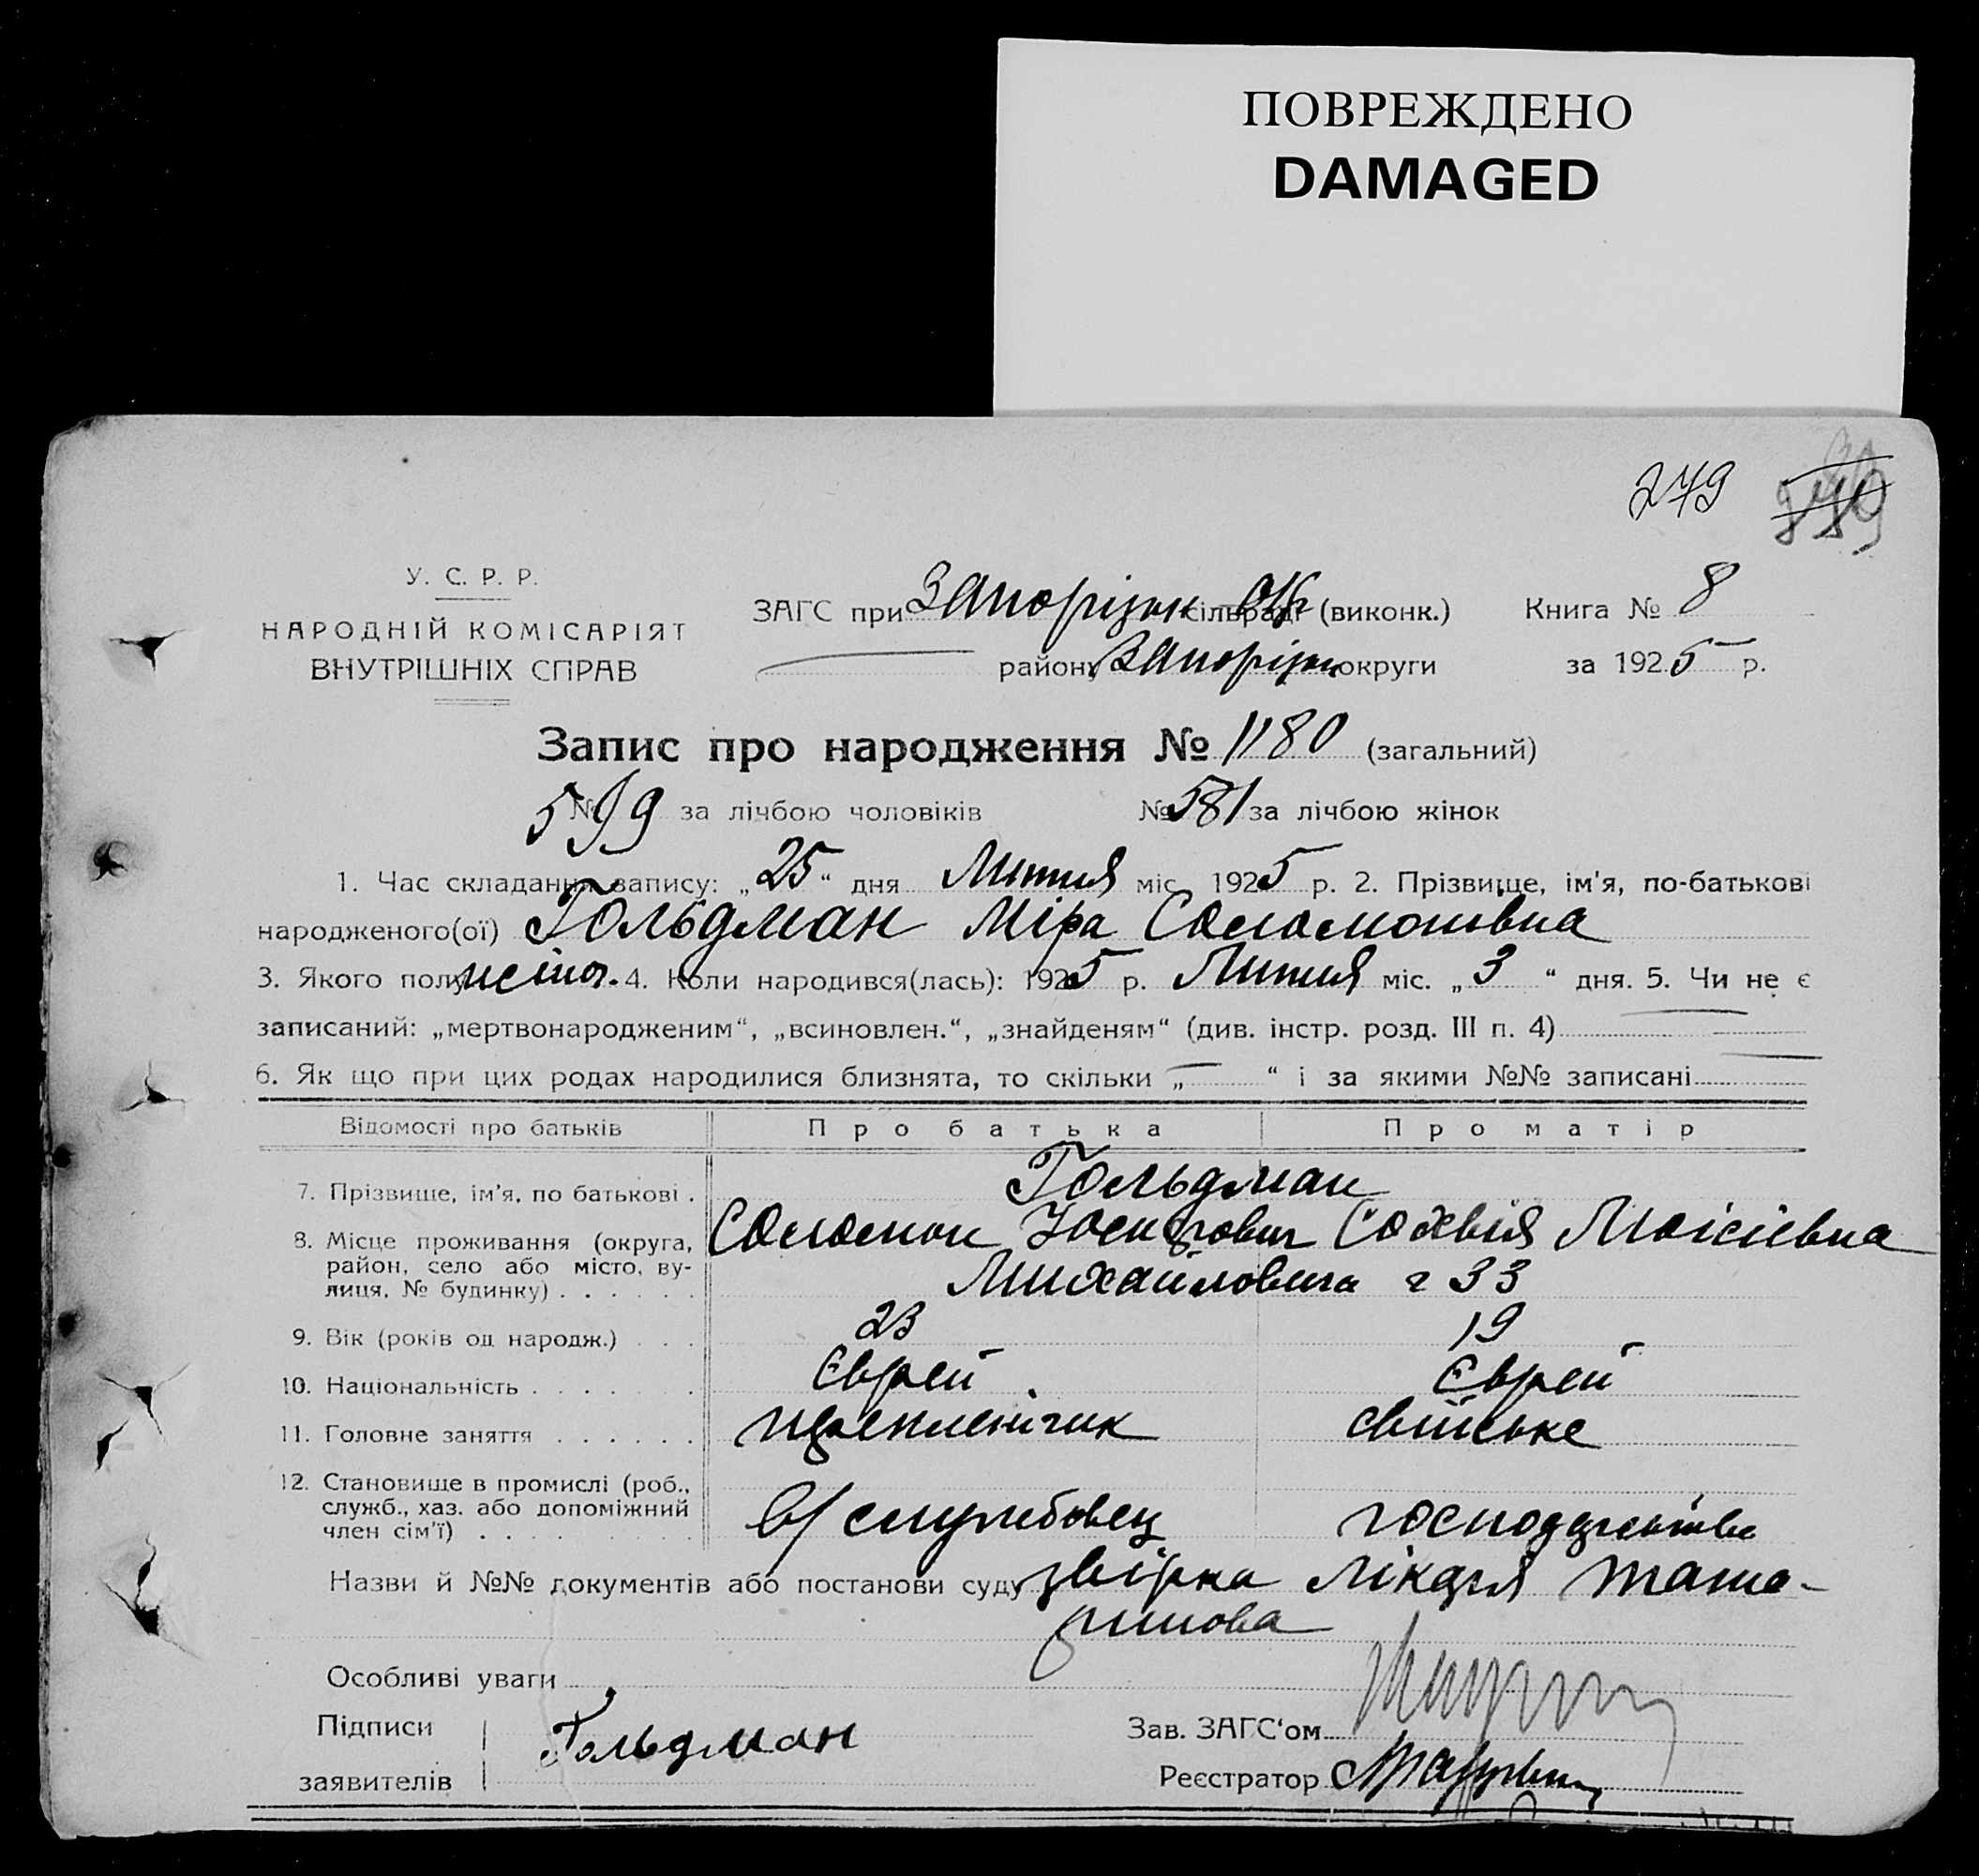 ПОВРЕЖДЕНО
DAMAGED
279
У. С. Р. Р.
НАРОДНІЙ КОМІСАРІЯТ
ВНУТРІШНІХ СПРАВ
ЗАГС при Запорізьк сільраді (виконк.) Книга № 8
району Запорізьк округи за 1925 р.
Запис про народження № 1180 (загальний)
№ 599 за лічбою чоловіків № 581 за лічбою жінок
1. Час складання запису: „25“ дня Липня міс. 1925 р. 2. Прізвище, ім'я, по-батькові
народженого(ої) Гольдман Міра Соломонівна
3. Якого полу жіноч. 4. Коли народився(лась): 1925 р. Липня міс. „3“ дня. 5. Чи не є
записаний: „мертвонародженим“, „всиновлен.“, „знайденям“ (див. інстр. розд. III п. 4)
6. Як що при цих родах народилися близнята, то скільки „ “ і за якими №№ записані
Відомості про батьків Про батька Про матір
7. Прізвище, ім'я, по батькові . Гольдман
Соломон Йосипович Софвія Мойсіївна
8. Місце проживання (округа,
район, село або місто, ву-
лиця, № будинку) . . . . . . Михайловича 33
9. Вік (років од народж.) . . . 23 19
10. Національність . . . . . . . Єврей Єврей
11. Головне заняття . . . . . . свійське
12. Становище в промислі (роб.,
служб., хаз. або допоміжний
член сім'ї) . . . . . . . . . в/службовец господарство
Назви й №№ документів або постанови суду звірка лікаря
Особливі уваги
Підписи
заявителів Гольдман
Зав. ЗАГС'ом
Реєстратор